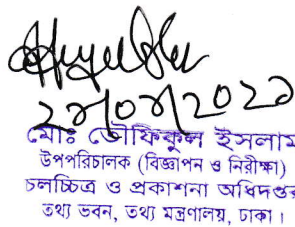 ২৮/০৮/২০২১
মোঃ তৌফিকুল ইসলাম
উপপরিচালক (বিজ্ঞাপন ও নিরীক্ষা)
চলচ্চিত্র ও প্রকাশনা অধিদপ্তর
তথ্য ভবন, তথ্য মন্ত্রণালয়, ঢাকা।